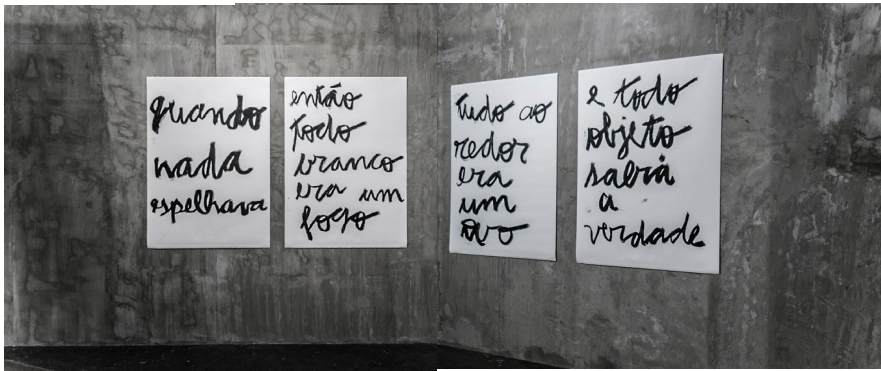 quando
nada
espelhava
então
todo
branco
era um
fogo
tudo ao
redor
era
um
ovo
e todo
objeto
sabia
a
verdade